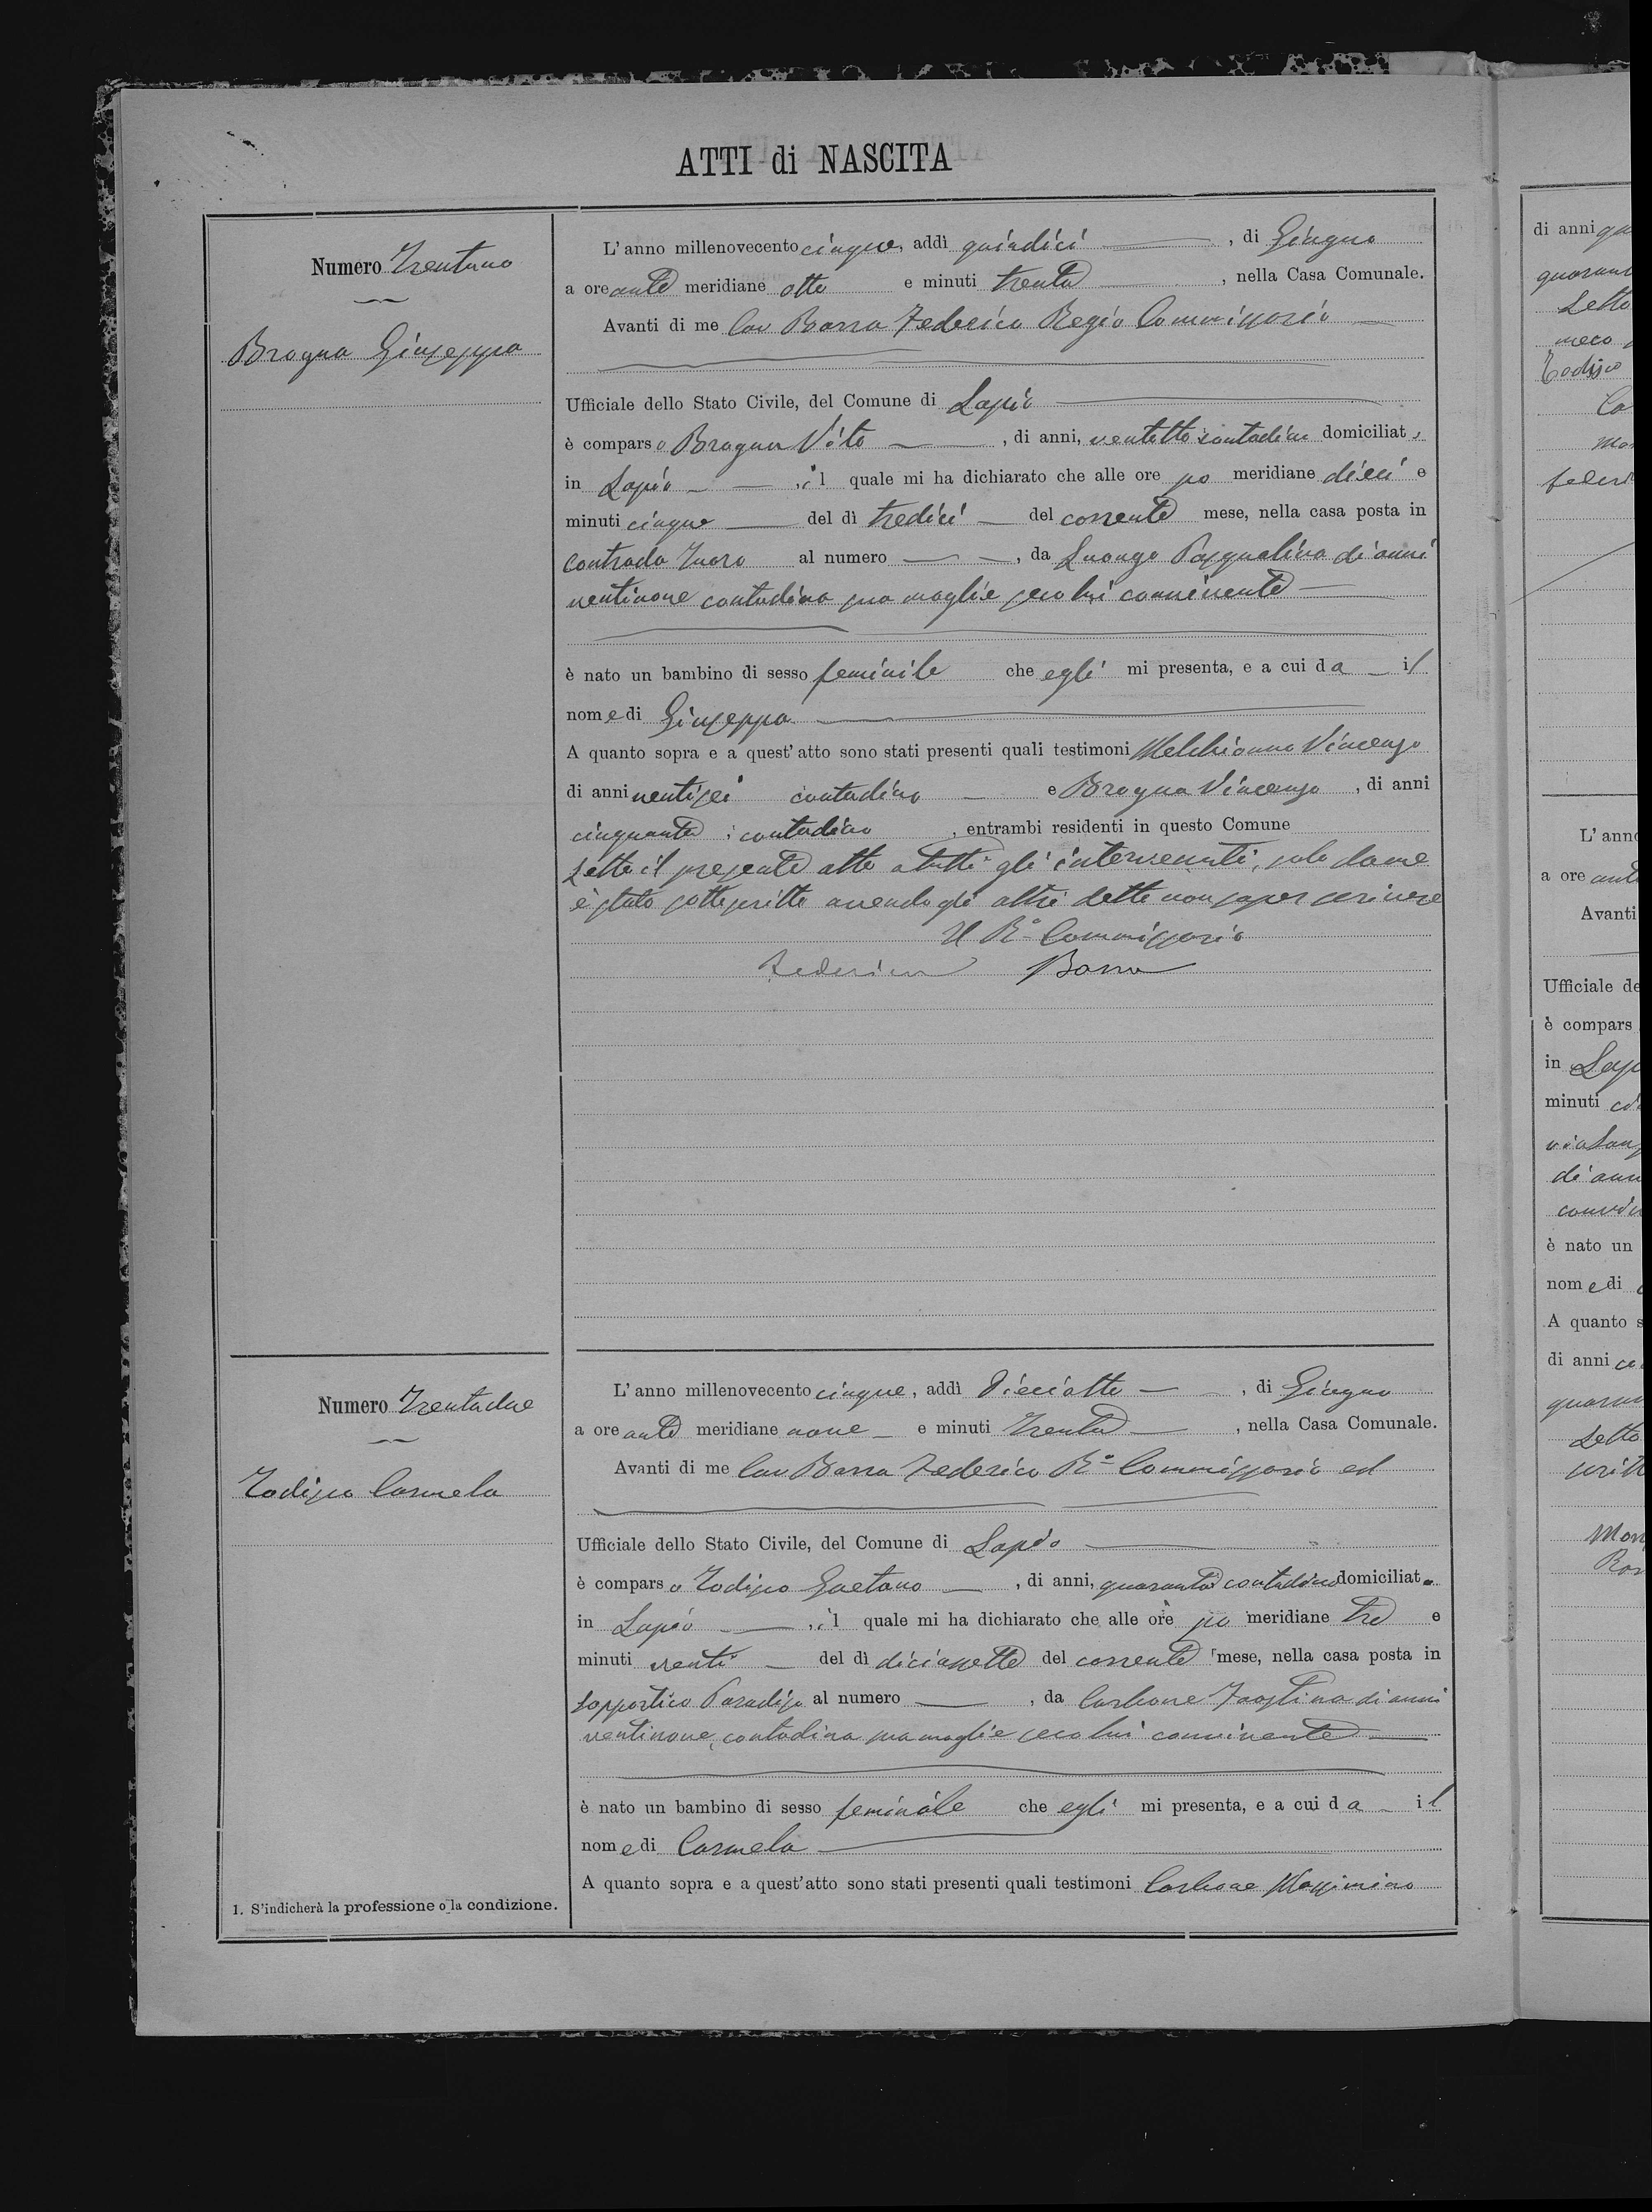 ATTI di NASCITA
Numero Trentuno
Brogna Giuseppa
L'anno millenovecento cinque, addì quindici, di Giugno
a ore ante meridiane otto e minuti trenta, nella Casa Comunale.
Avanti di me Cav Barra Federico Regio Commissario
Ufficiale dello Stato Civile, del Comune di Lapio
è comparso Brogna Vito, di anni, ventotto contadino domiciliato
in Lapio, il quale mi ha dichiarato che alle ore po meridiane dieci e
minuti cinque del dì tredici del corrente mese, nella casa posta in
Contrada Tuoro al numero, da Luongo Pasqualina di anni
ventinove contadina sua moglie seco lui convivente
è nato un bambino di sesso feminile che egli mi presenta, e a cui da il
nome di Giuseppa
A quanto sopra e a quest'atto sono stati presenti quali testimoni Melchionna Vincenzo
di anni ventisei contadino e Brogna Vincenzo, di anni
cinquanta contadino, entrambi residenti in questo Comune
Letto il presente atto a tutti gli intervenuti, solo da me
è stato sottoscritto avendo gli altri detto non saper scrivere
Il R° Commissario
Federico Barra
Numero Trentadue
Todisco Carmela
L'anno millenovecento cinque, addì Dieciotto, di Giugno
a ore ante meridiane nove e minuti trenta, nella Casa Comunale.
Avanti di me Cav Barra Federico R° Commissario ed
Ufficiale dello Stato Civile, del Comune di Lapio
è comparso Todisco Gaetano, di anni, quaranta contadino domiciliato
in Lapio, il quale mi ha dichiarato che alle ore po meridiane tre e
minuti venti del dì diciassette del corrente mese, nella casa posta in
Sopportico Paradiso al numero, da Carbone Faostina di anni
ventinove, contadina sua moglie seco lui convivente
è nato un bambino di sesso feminile che egli mi presenta, e a cui da il
nome di Carmela
A quanto sopra e a quest'atto sono stati presenti quali testimoni Carbone Massimino
1. S'indicherà la professione o la condizione.
di anni
Letto
meco
Todisco
L'anno
a ore
Avanti
Ufficiale
è compars
in
minuti
di
è nato un
nome di
A quanto
di anni
Letto